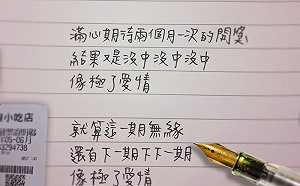 滿心期待兩個月一次的開獎
結果又是沒中沒中沒中
像極了愛情
就算這一期無緣
還有下一期下下一期
像極了愛情
小吃店
05-06月
83294738